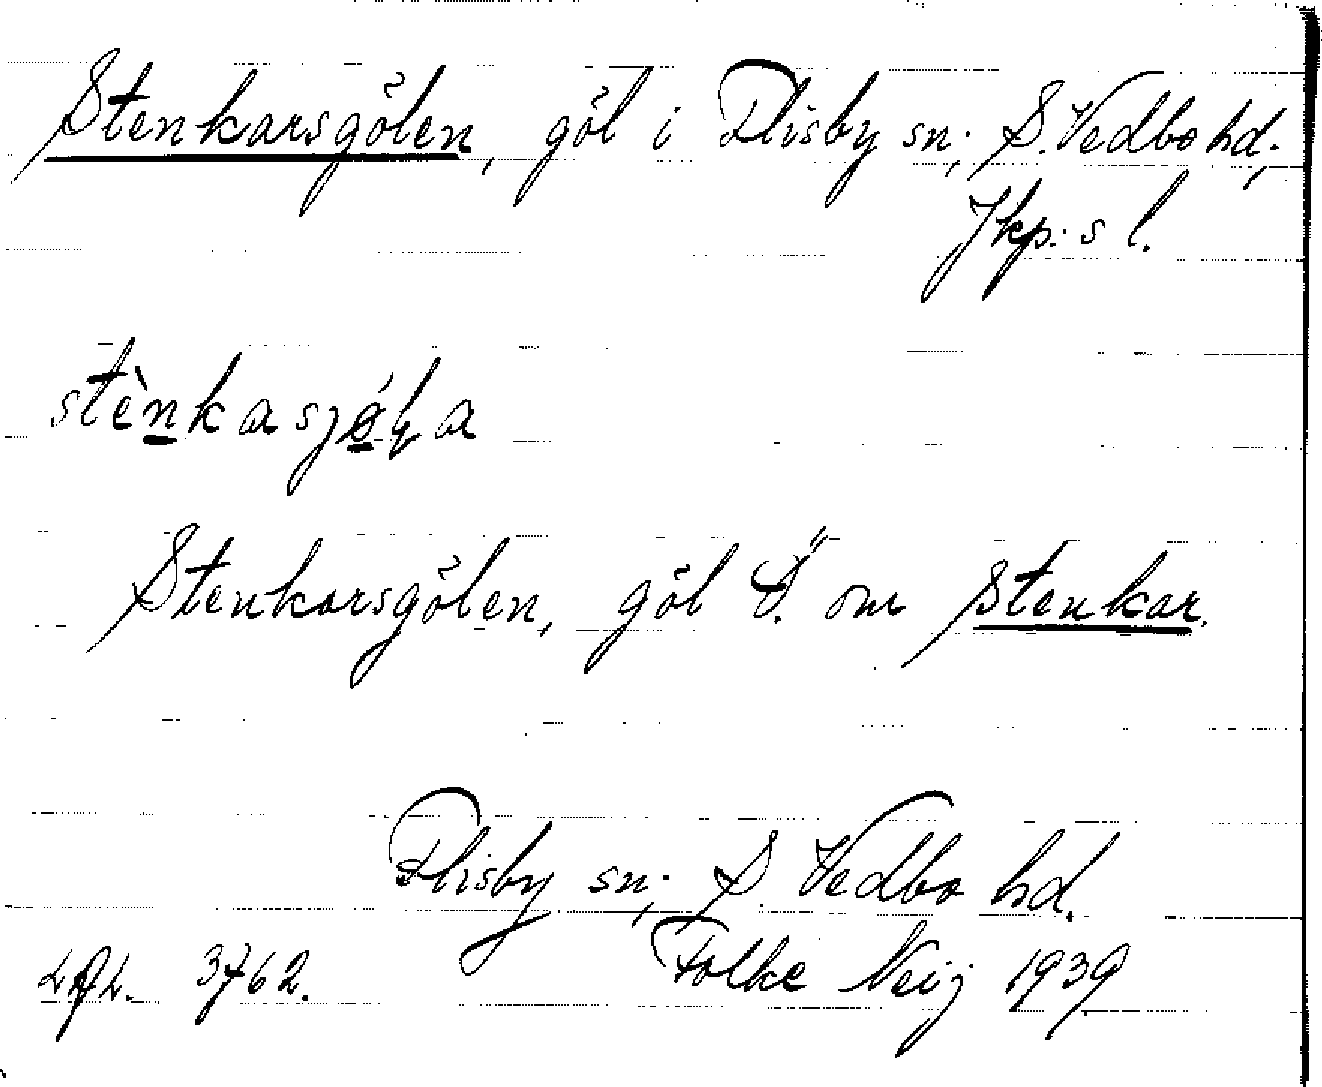 Stenkarsgölen, göl i Flisby sn., S. Vedbo hd.,
Jkp:s l.
stènkasjǿla
Stenkarsgölen, göl Ö. om Stenkar.
Flisby sn., S. Vedbo hd.
3762. Folke Neij 1939